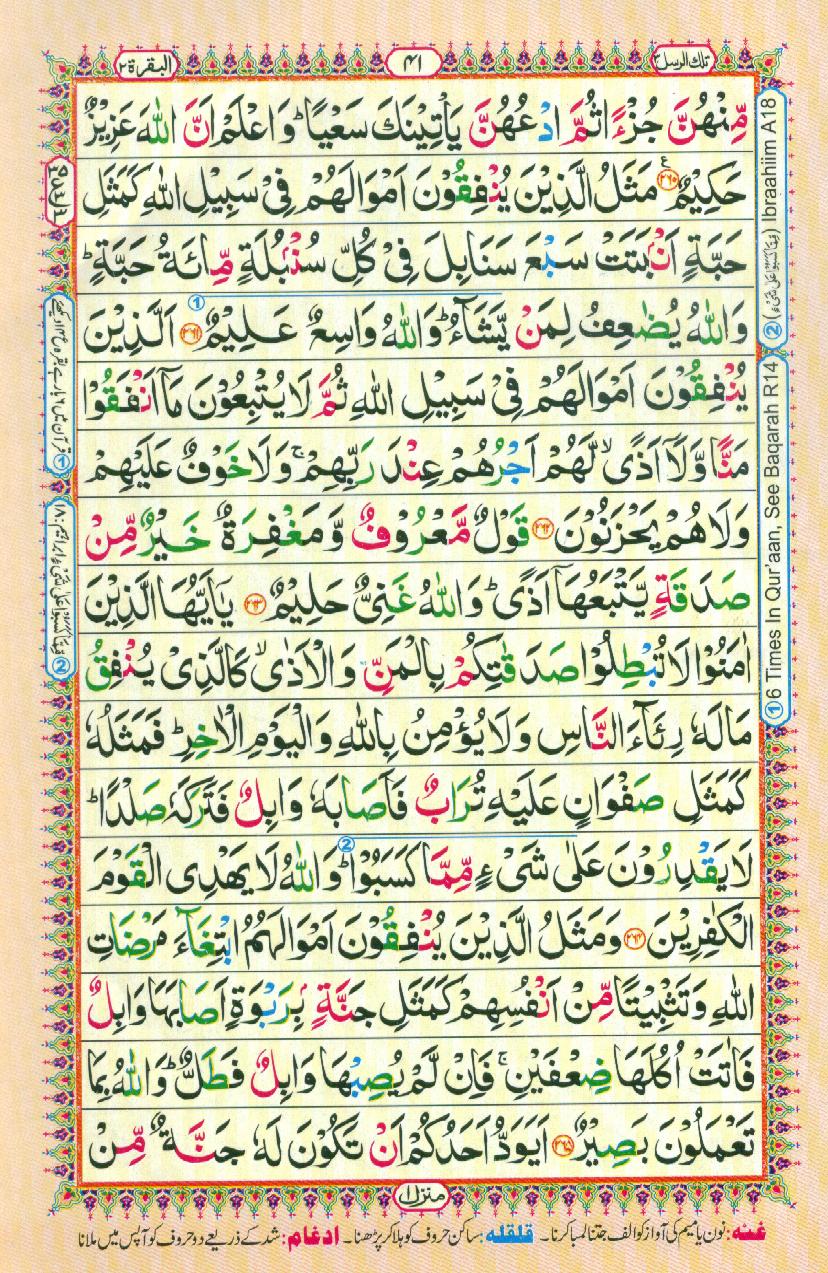 تلك الرسل ۳
۴۱
البقرة ۲
مِّنْهُنَّ جُزْءًا ثُمَّ ادْعُهُنَّ يَأْتِيْنَكَ سَعْيًا ؕ وَ اعْلَمْ اَنَّ اللّٰهَ عَزِيْزٌ
حَكِيْمٌ ۝۲۶۰ ع مَثَلُ الَّذِيْنَ يُنْفِقُوْنَ اَمْوَالَهُمْ فِیْ سَبِيْلِ اللّٰهِ كَمَثَلِ
حَبَّةٍ اَنْۢبَتَتْ سَبْعَ سَنَابِلَ فِیْ كُلِّ سُنْۢبُلَةٍ مِّائَةُ حَبَّةٍ ؕ
وَ اللّٰهُ يُضٰعِفُ لِمَنْ يَّشَآءُ ؕ وَ اللّٰهُ وَاسِعٌ عَلِيْمٌ ۝۲۶۱ اَلَّذِيْنَ
يُنْفِقُوْنَ اَمْوَالَهُمْ فِیْ سَبِيْلِ اللّٰهِ ثُمَّ لَا يُتْبِعُوْنَ مَاۤ اَنْفَقُوْا
مَنًّا وَّ لَاۤ اَذًی ۙ لَّهُمْ اَجْرُهُمْ عِنْدَ رَبِّهِمْ ۚ وَ لَا خَوْفٌ عَلَيْهِمْ
وَ لَا هُمْ يَحْزَنُوْنَ ۝۲۶۲ قَوْلٌ مَّعْرُوْفٌ وَّ مَغْفِرَةٌ خَيْرٌ مِّنْ
صَدَقَةٍ يَّتْبَعُهَاۤ اَذًی ؕ وَ اللّٰهُ غَنِیٌّ حَلِيْمٌ ۝۲۶۳ يٰۤاَيُّهَا الَّذِيْنَ
اٰمَنُوْا لَا تُبْطِلُوْا صَدَقٰتِكُمْ بِالْمَنِّ وَ الْاَذٰی ۙ كَالَّذِیْ يُنْفِقُ
مَالَهٗ رِئَآءَ النَّاسِ وَ لَا يُؤْمِنُ بِاللّٰهِ وَ الْيَوْمِ الْاٰخِرِ ؕ فَمَثَلُهٗ
كَمَثَلِ صَفْوَانٍ عَلَيْهِ تُرَابٌ فَاَصَابَهٗ وَابِلٌ فَتَرَكَهٗ صَلْدًا ؕ
لَا يَقْدِرُوْنَ عَلٰی شَیْءٍ مِّمَّا كَسَبُوْا ؕ وَ اللّٰهُ لَا يَهْدِی الْقَوْمَ
الْكٰفِرِيْنَ ۝۲۶۴ وَ مَثَلُ الَّذِيْنَ يُنْفِقُوْنَ اَمْوَالَهُمُ ابْتِغَآءَ مَرْضَاتِ
اللّٰهِ وَ تَثْبِيْتًا مِّنْ اَنْفُسِهِمْ كَمَثَلِ جَنَّةٍۭ بِرَبْوَةٍ اَصَابَهَا وَابِلٌ
فَاٰتَتْ اُكُلَهَا ضِعْفَيْنِ ۚ فَاِنْ لَّمْ يُصِبْهَا وَابِلٌ فَطَلٌّ ؕ وَ اللّٰهُ بِمَا
تَعْمَلُوْنَ بَصِيْرٌ ۝۲۶۵ اَيَوَدُّ اَحَدُكُمْ اَنْ تَكُوْنَ لَهٗ جَنَّةٌ مِّنْ
منزل ۱
غنه: نون یا میم کی آواز کو الف جتنا لمبا کرنا۔ قلقله: ساکن حروف کو ہلا کر پڑھنا۔ ادغام: شد کے ذریعے دو حروف کو آپس میں ملانا
① 6 Times In Qur'aan, See Baqarah R14
② Ibraahiim A18